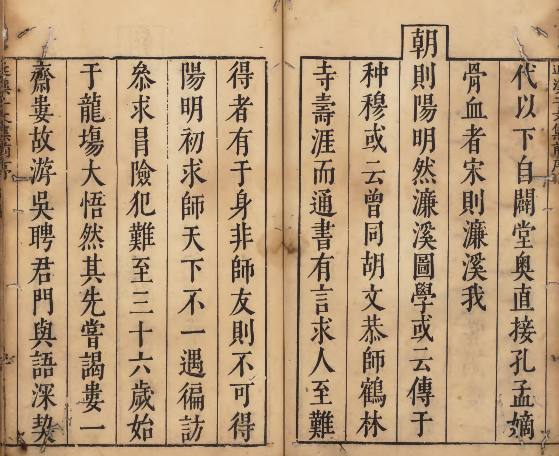 代以下自闢堂奧直接孔孟嫡
骨血者宋則濂溪我
朝則陽明然濂溪圖學或云傳于
种穆或云曾同胡文恭師鶴林
寺壽涯而通書有言求人至難
得者有于身非師友則不可得
陽明初求師天下不一遇徧訪
叅求冒險犯難至三十六歲始
于龍塲大悟然其先嘗謁婁一
齋婁故游吳聘君門與語深契